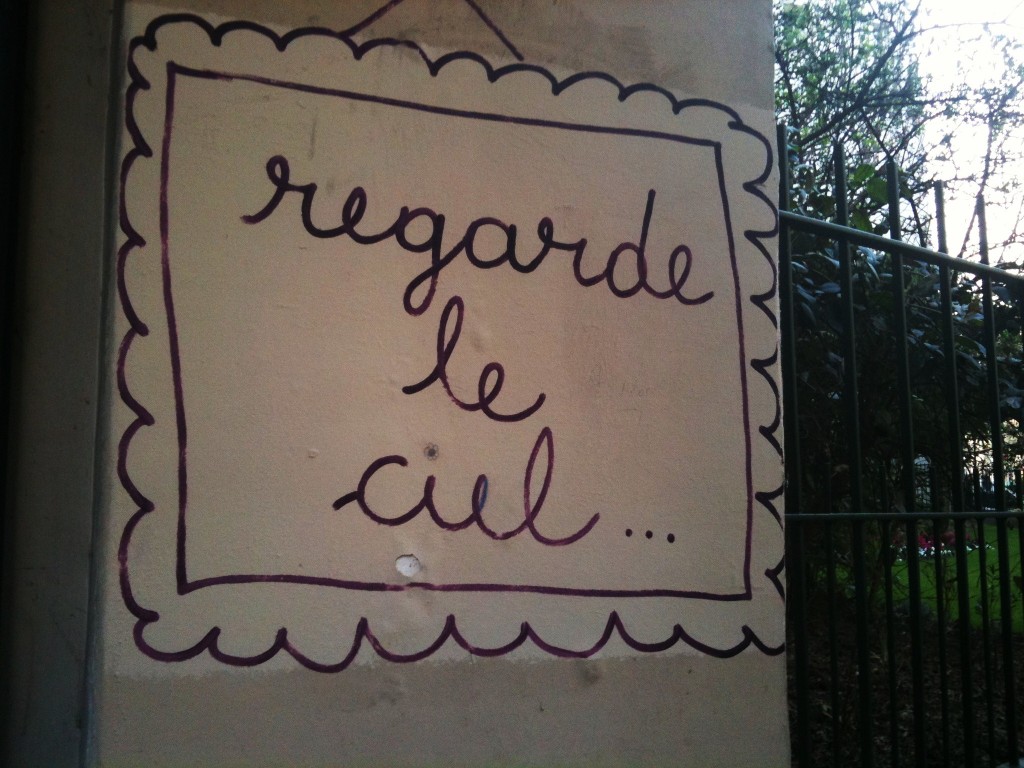 regarde
le
ciel...